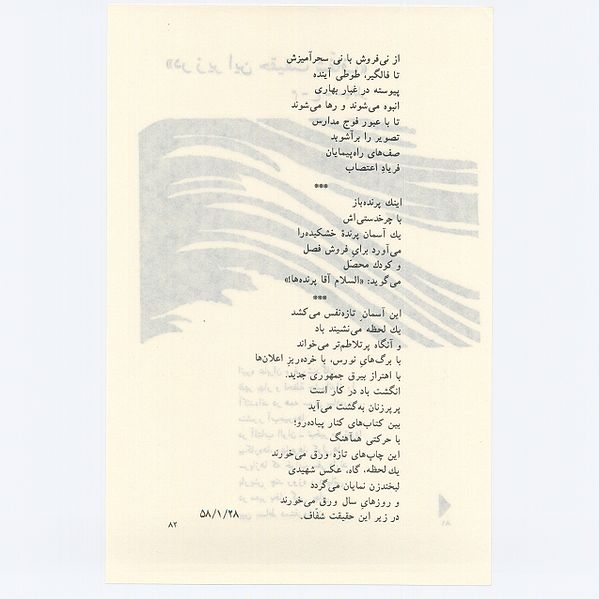 از نی‌فروش با نی سحرآمیزش
تا فالگیر، طوطی آینده
پیوسته در غبار بهاری
انبوه می‌شوند و رها می‌شوند
تا با عبور فوج مدارس
تصویر را برآشوبد
صف‌های راه‌پیمایان
فریادِ اعتصاب
***
اینك پرنده‌باز
با چرخدستی‌اش
یك آسمان پرندهٔ خشكیده‌را
می‌آورد برایِ فروش فصل
و كودك محصّل
می‌گوید: «السلام آقا پرنده‌ها!»
***
این آسمانِ تازه‌نفس می‌كشد
یك لحظه می‌نشیند باد
و آنگاه پرتلاطم‌تر می‌خواند
با برگ‌های نورس، با خرده‌ریزِ اعلان‌ها
با اهتراز بیرق جمهوری جدید.
انگشت باد در كار است
پرپرزنان به‌گشت می‌آید
بین كتاب‌های كنار پیاده‌رو؛
با حركتی همآهنگ
این چاپ‌های تازه ورق می‌خورند
یك لحظه، گاه، عكس شهیدی
لبخندزن نمایان می‌گردد
و روزهایِ سال ورق می‌خورند
در زیر این حقیقت شفّاف.
۵۸/۱/۲۸
۸۲